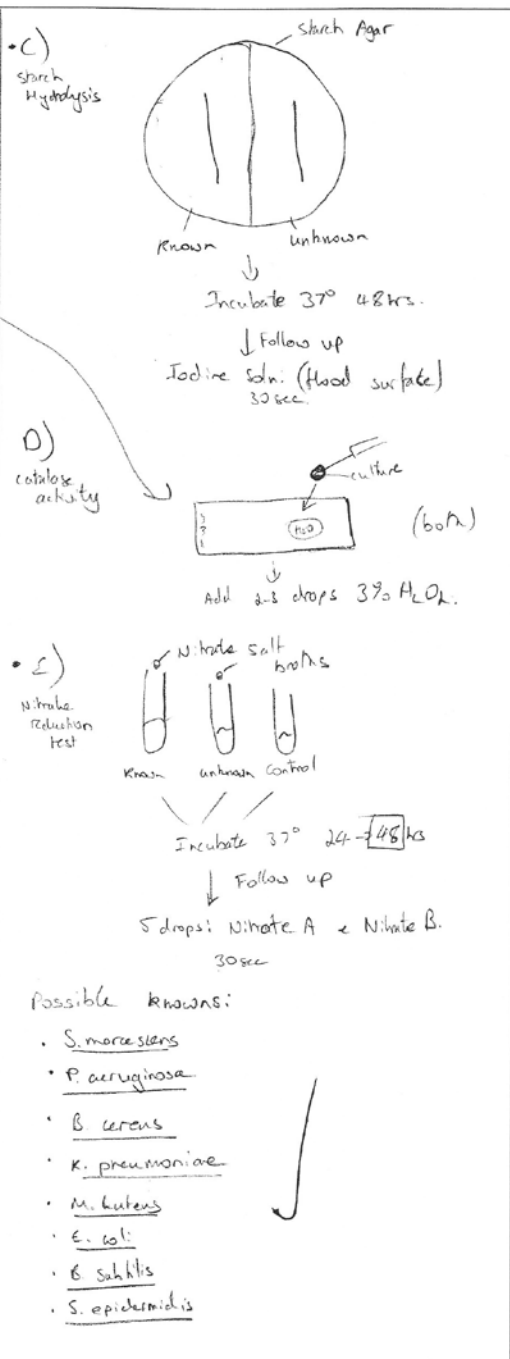 Starch Agar
• C)
Starch
Hydrolysis
Known
unknown
Incubate 37° 48hrs.
Follow up
Iodine Soln: (flood surface)
30 sec.
D)
catalase
activity
culture
H2O
(both)
Add 2-3 drops 3% H2O2.
• E)
Nitrate Salt
broths
Nitrate
Reduction
test
Known unknown Control
Incubate 37° 24-48 hrs
Follow up
5 drops: Nitrate A & Nitrate B.
30 sec
Possible knowns:
• S. marcesiens
• P. aeruginosa
• B cereus
• K. pneumoniae
• M. luteus
• E. coli
• B. subtilis
• S. epidermidis